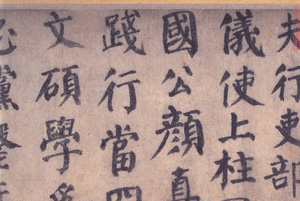 夫行吏部
儀使上柱國
國公顏真
踐行當四
文碩學為
黨